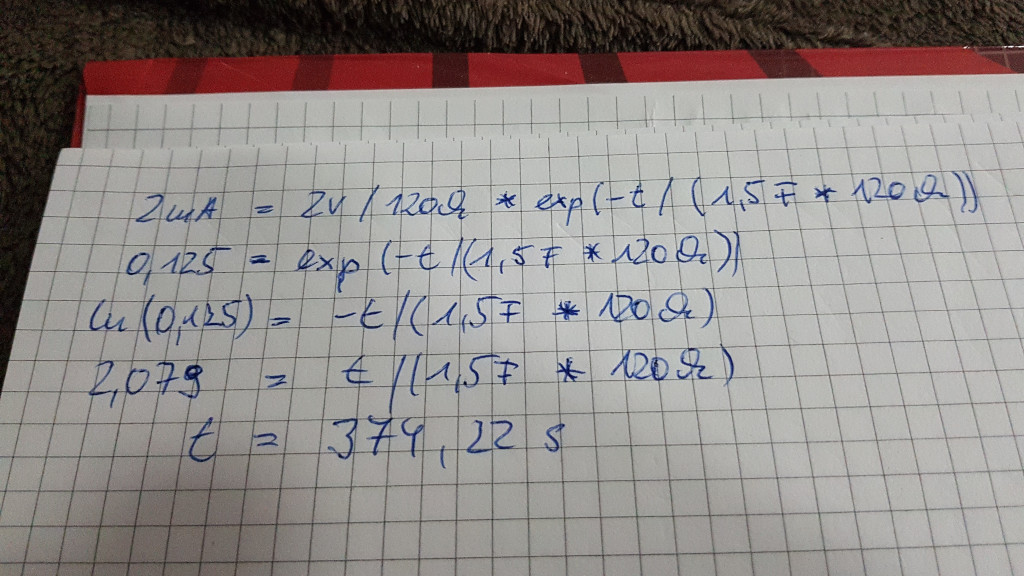 2mA = 2V / 120Ω * exp(-t / (1,5F * 120Ω))
0,125 = exp (-t /(1,5F * 120Ω))
ln (0,125) = -t /(1,5F * 120Ω)
2,079 = t /(1,5F * 120Ω)
t = 374,22 s